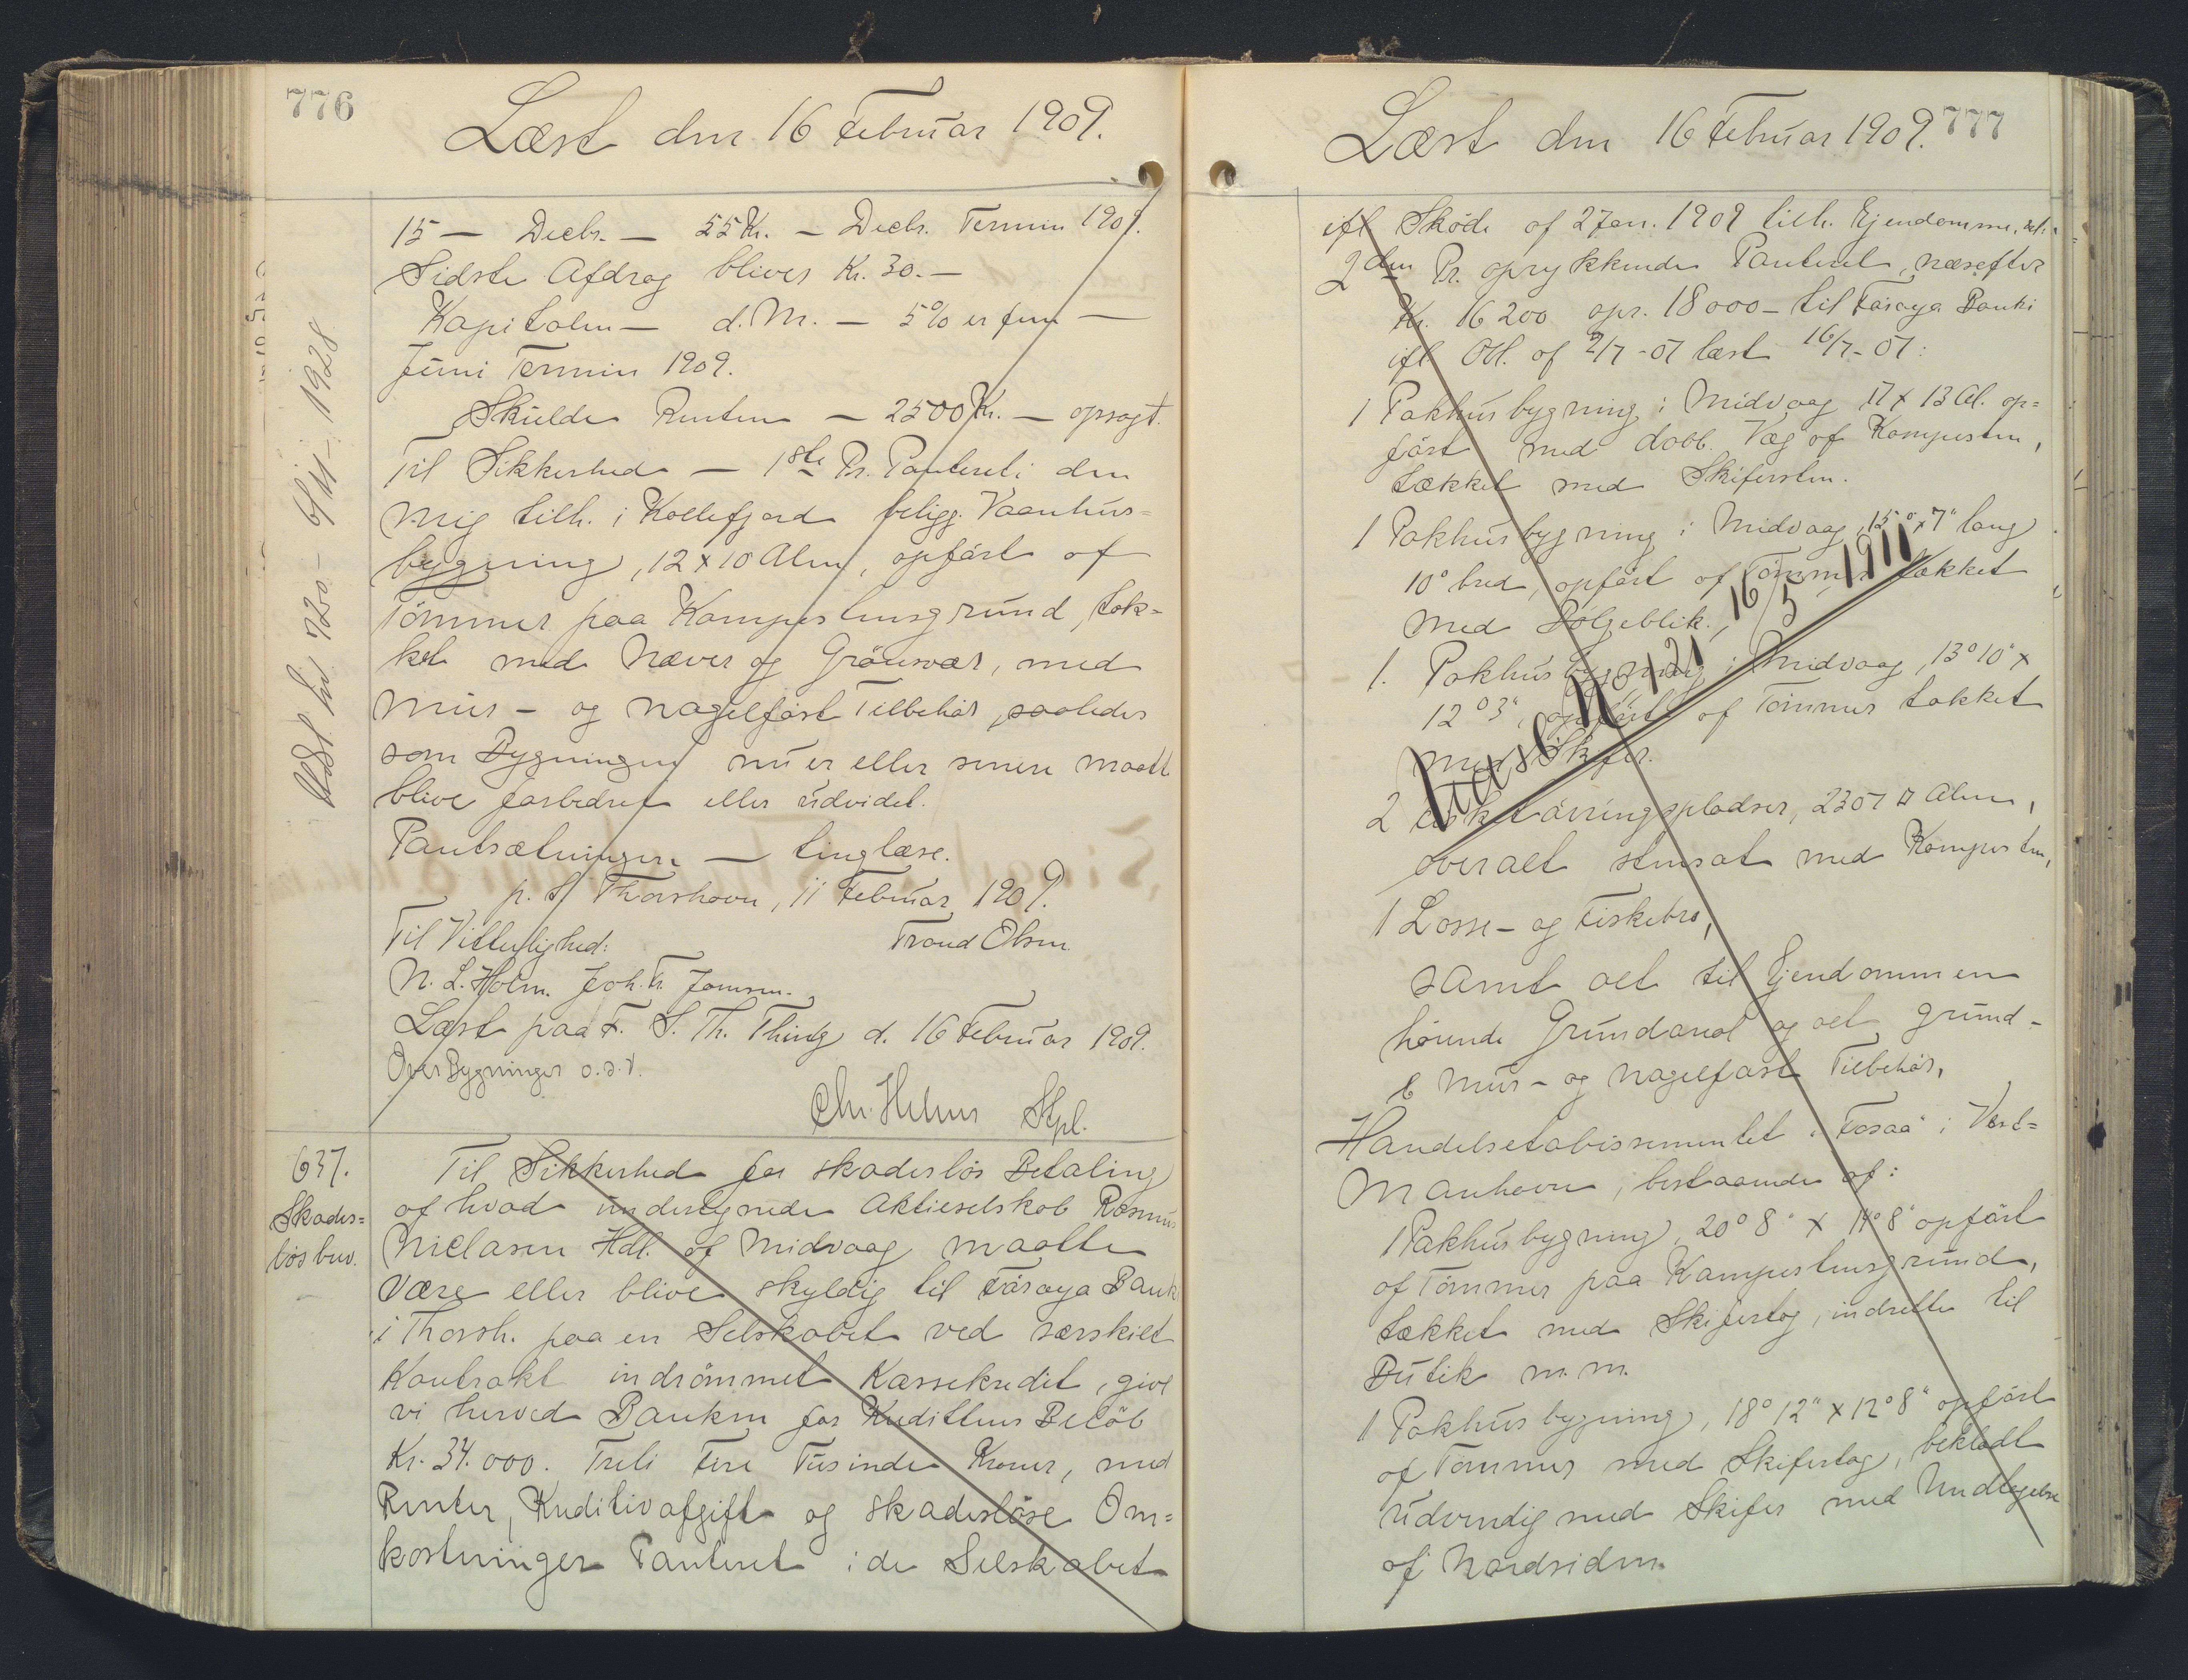 776
Læst den 16 Februar 1909.
15 — Decbr. — 55 Kr. — Decbr. Termin 1909.
Sidste Afdrag bliver Kr. 30. —
Kapitalen — d. M. — 5% er fem —
Juni Termin 1909.
Skulde Renten — 2500 Kr. — opsagt.
Til Sikkerhed — 1ste Pr. Panteret i den
mig tilh. i Kollefjord beligg. Vaanhus-
bygning, 12 x 10 Alen, opført af
Tömmer paa Kampestensgrund, tæk-
ket med Næver og Grönsvær, med
mur- og nagelfast Tilbehör, saaledes
som Bygningen nu er eller senere maatte
blive forbedret eller udvidet.
Pantsætningen — tinglæse.
p. t. Thorshavn, 11 Februar 1909.
Til Vitterlighed: Trond Olsen.
N. L. Holm. Joh. Fr. Joensen.
Læst paa F. S. Th. Thing d. 16 Februar 1909.
Over Bygninger o.s.v.
Chr. Helms Stpl.
Udsl. 6/11 - 1928
637.
Skades=
lösbrev.
Til Sikkerhed for skadeslös Betaling
af hvad undertegnede Aktieselskab Rasmus
Niclasen Hdl. af Midvaag maatte
være eller blive skyldig til Föroya Bank
i Thorsh. paa en Selskabet ved særskilt
Kontrakt indrömmet Kassekredit, give
vi herved Banken for Kredittens Belöb
Kr. 34.000. Treti Fire Tusinde Kroner, med
Renter, Kreditivafgift og skadeslöse Om=
kostninger Panteret i de Selskabet
777
Læst den 16 Februar 1909.
ifl Sköde af 2 Jan. 1909 tilh. Ejendomme,
2den Pr. oprykkende Panteret, næsefter
Kr. 16 200 opr. 18000 — til Föroya Banki
ifl. Obl. af 9/7 - 07 læst 16/7 - 07:
1 Pakhusbygning i Midvaag 17 x 13 Al. op=
fört med dobb. Væg af Kampesten,
tækket med Skifersten.
1 Pakhusbygning i Midvaag, 15° x 7" lang
10° bred, opfört af Tömmer tækket
med Bölgeblik.
1. Pakhusbygning i Midvaag, 13° 10" x
12° 3", opfört af Tömmer tækket
med Skifer.
No 121 16/5 1911
2 Fisketörringspladser, 2307 □ Alen,
overalt stensat med Kampesten,
1 Losse- og Fiskebro,
samt alt til Ejendommen
hörende Grundareal og alt grund-
& mur- og nagelfast Tilbehör,
Handelsetablissementet "Fosaá" i Vest=
manhavn, bestaaende af:
1 Pakhusbygning, 20° 8" x 14° 8" opfört
af Tömmer paa Kampestensgrund,
tækket med Skifertag, indrettet til
Butik m.m.
1 Pakhusbygning, 18° 12" x 12° 8" opfört
af Tömmer med Skifertag, beklædt
udvendig med Skifer med Undtagelse
af Nordsiden.